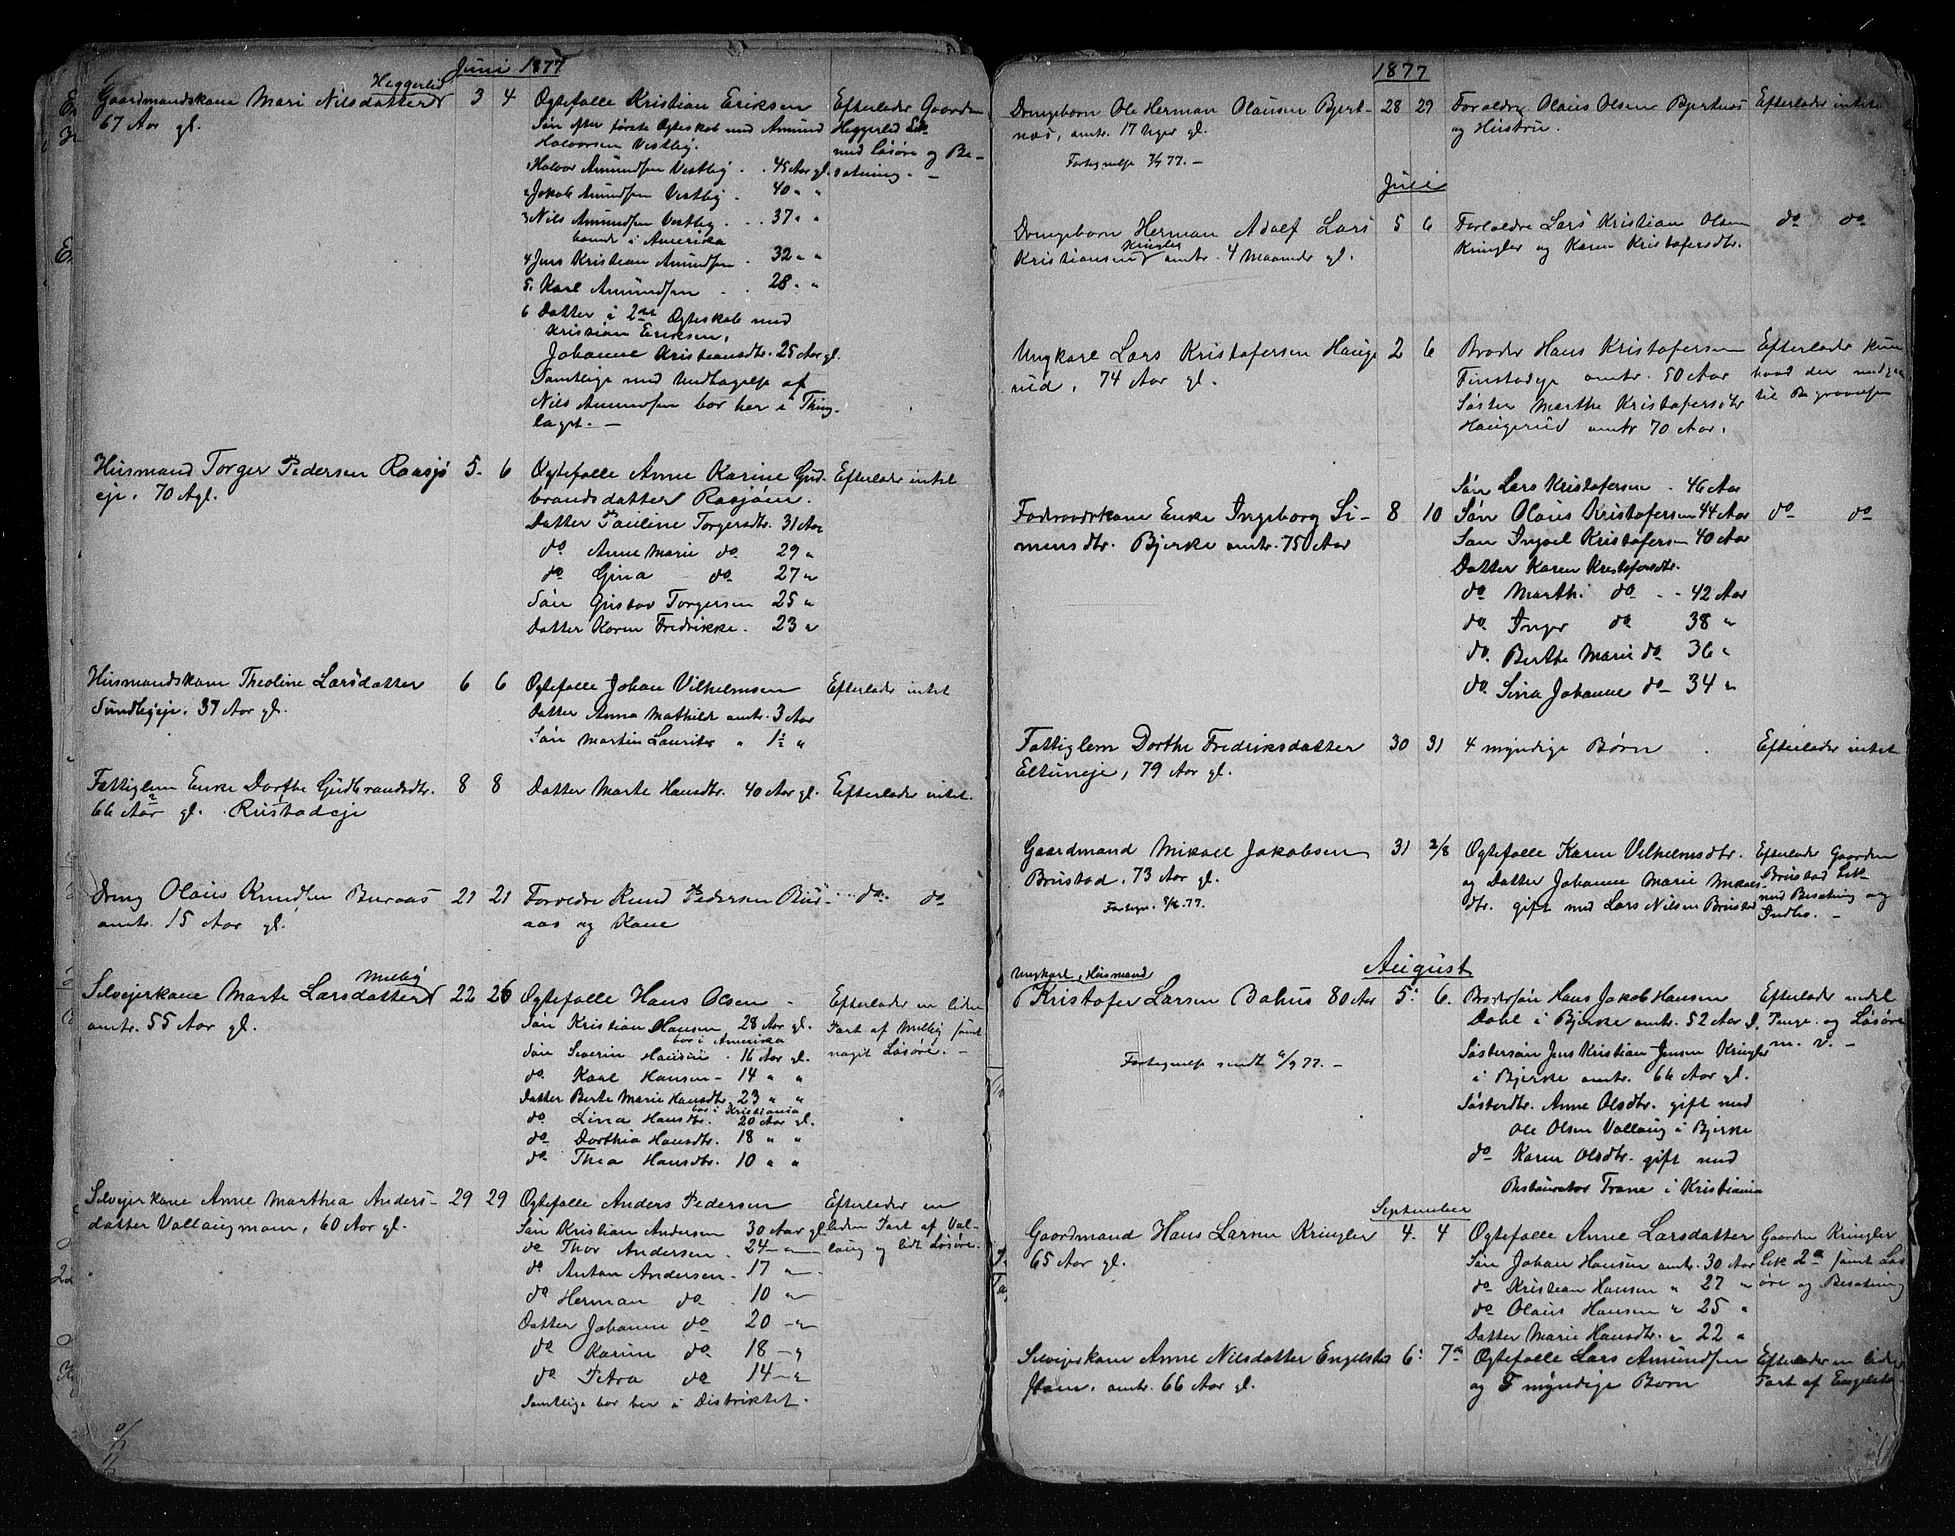 Juni 1877
Heggerlid
Gaardmandskone Mari Nilsdatter 3 4
67 Aar gl.
Ægtefælle Kristian Eriksen
Søn efter første Ægteskab med Amund
Halvorsen Vestby.
1 Halvor Amundsen Vestby . . 45 Aar gl.
2 Jakob Amundsen Vestby . 40 " "
3 Nils Amundsen Vestby . . 37 " "
boende i Amerika
4 Jens Kristian Amundsen . 32 " "
5. Karl Amundsen . . 28 " "
6 Datter i 2det Ægteskab med
Kristian Eriksen,
Johanne Kristiansdtr. 25 Aar gl.
Samtlige med Undtagelse af
Nils Amundsen bor her i Thing-
laget. —
Efterlader Gaarden
Heggerlid
med Løsøre og Be-
sætning. —
Husmand Torger Pedersen Raasjø 5. 6
eje, 70 A gl.
Ægtefælle Anne Karine Gud-
brandsdatter Rasjøen.
Datter Pauline Torgersdtr. 31 Aar
do Anne Marie do 29 "
do Gina — do 27 "
Søn Gustav Torgersen 25 "
Datter Karen Fredrikke. 23 "
Efterlader intet
Husmandskone Theoline Larsdatter 6 6
Sundbyeje. 37 Aar gl.
Ægtefælle Johan Vilhelmsen
Datter Anna Mathilde omtr. 3 Aar
Søn Martin Laurits " 1½ "
Efterlader intet
Fattiglem Enke Dorthe Gudbrandsdtr. 8 8
66 Aar gl. Rustadeje
Datter Marte Hansdtr. 40 Aar gl.
Efterlader intet.
Dreng Olaus Knudsen Buraas 21 21
omtr. 15 Aar gl.
Forældre Knud Pedersen Bur-
aas og Kone
do. do
Melby
Selvejerkone Marte Larsdatter 22 26
omtr. 55 Aar gl.
Ægtefælle Hans Olsen -
Søn Kristian Hansen 28 Aar gl.
bor i Amerika
Søn Severin Hansen . 16 Aar gl.
do. Karl Hansen - 14 " "
Datter Berte Marie Hansdtr. 23 " "
bor i Kristiania
do Lina Hansdtr. 20 Aar gl.
do Dorthia Hansdtr. 18 " "
do Thea Hansdtr. 10 " "
Efterlader en liden
Part af Melby samt
noget Løsøre. —
Selvejerkone Anne Marthea Anders- 29 29
datter Vallaugmoen, 60 Aar gl.
Ægtefælle Anders Pedersen
Søn Kristian Andersen 30 Aar gl.
do Thor Andersen . 24 — "
do Anton Andersen . 17 — "
do Herman do . 10 — "
Datter Johanne do 20 — "
do Karine do 18 — "
do Petra do 14 — "
Samtlige bor her i Distriktet.
Efterlader en
liden Part af Val-
laug og lidt Løsøre.
1877
Drengebarn Ole Herman Olausen Bjert- 28 29
næs, omtr. 17 Uger gl.
Fortegnelse 7/7 77. —
Forældre Olaus Olsen Bjertnæs
og Hustru.
Efterlader intet
Juli
Drengebarn Herman Adolf Lars 5 6
Kringler
Kristiansen omtr. 4 Maaneder gl.
Forældre Lars Kristian Olsen
Kringler og Karen Kristofersdtr.
do do
Ungkarl Lars Kristofersen Hauge 2 6
rud, 74 Aar gl.
Broder Hans Kristofersen
Finstadeje omtr. 50 Aar
Søster Marthe Kristofersdtr
Haugerud omtr 70 Aar.
Efterlader kun
hvad der medgaar
til Begravelsen
Føderaadskone Enke Ingeborg Si- 8 10
mensdtr. Bjerke omtr. 75 Aar
Søn Lars Kristofersen . 46 Aar
Søn Olaus Kristofersen 44 Aar
Søn Ingvel Kristofersen 40 Aar
Datter Karen Kristofersdtr.
do Marthe do - - 42 Aar
do. Inger do 38 "
do. Berthe Marie do 36 "
do. Sina Johanne do 34 "
do do
Fattiglem Dorthe Fredriksdatter 30 31
Eltuneje, 79 Aar gl.
4 myndige Børn
Efterlader intet
Gaardmand Mikael Jakobsen 31 2/8
Brustad, 73 Aar gl.
Fortegn. 8/8 77.
Ægtefælle Karen Vilhelmsdtr.
og Datter Johanne Marie Mikaels
dtr. gift med Lars Nilsen Brustad
Efterlader Gaarden
Brustad
med Besætning og
Indbo. —
August
Ungkarl, Husmand
Kristofer Larsen Bahus 80 Aar 5. 6.
Fortegnelse sendt 6/9 77. —
Brodersøn Hans Jakob Hansen
Dahl i Bjerke omtr. 52 Aar
Søstersøn Jens Kristian Jensen Kringler
i Bjerke omtr. 66 Aar gl.
Søsterdtr. Anne Olsdtr. gift med
Ole Olsen Vallaug i Bjerke
do Karen Olsdtr. gift med
Restauratør Trane i Kristiania
Efterlader endel
Penge og Løsøre
m. v. —
September
Gaardmand Hans Larsen Kringler 4. 4
65 Aar gl.
Ægtefælle Anne Larsdatter
Søn Johan Hansen omtr. 30 Aar
do Kristian Hansen " 27 "
do Olaus Hansen " 25 "
Datter Marie Hansdtr. " 22 "
Gaarden Kringler
samt Løs
øre og Besætning
Selvejerkone Anne Nilsdatter Engelsta 6. 7de
omtr. 66 Aar gl.
Ægtefælle Lars Amundsen
og 5 myndige Børn
Efterlader en liden
Part af Engelsta